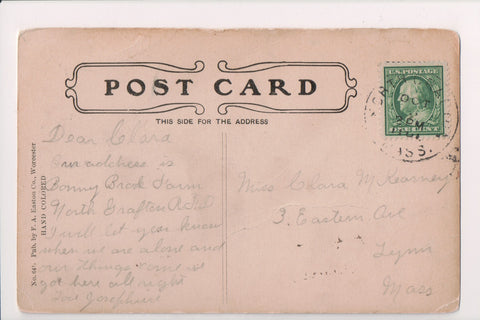 POST CARD
THIS SIDE FOR THE ADDRESS
U.S. POSTAGE
ONE CENT
OCT
MASS.
No. 641. Pub. by F. A. Easton Co., Worcester
HAND COLORED
Dear Clara
Our address is
Bonny Brook Farm
North Grafton R.F.D
I will let you know
when we are alone and
our things come we
got here all right
Josephine
Miss Clara M Kearney
3. Eastern Ave
Lynn
Mass